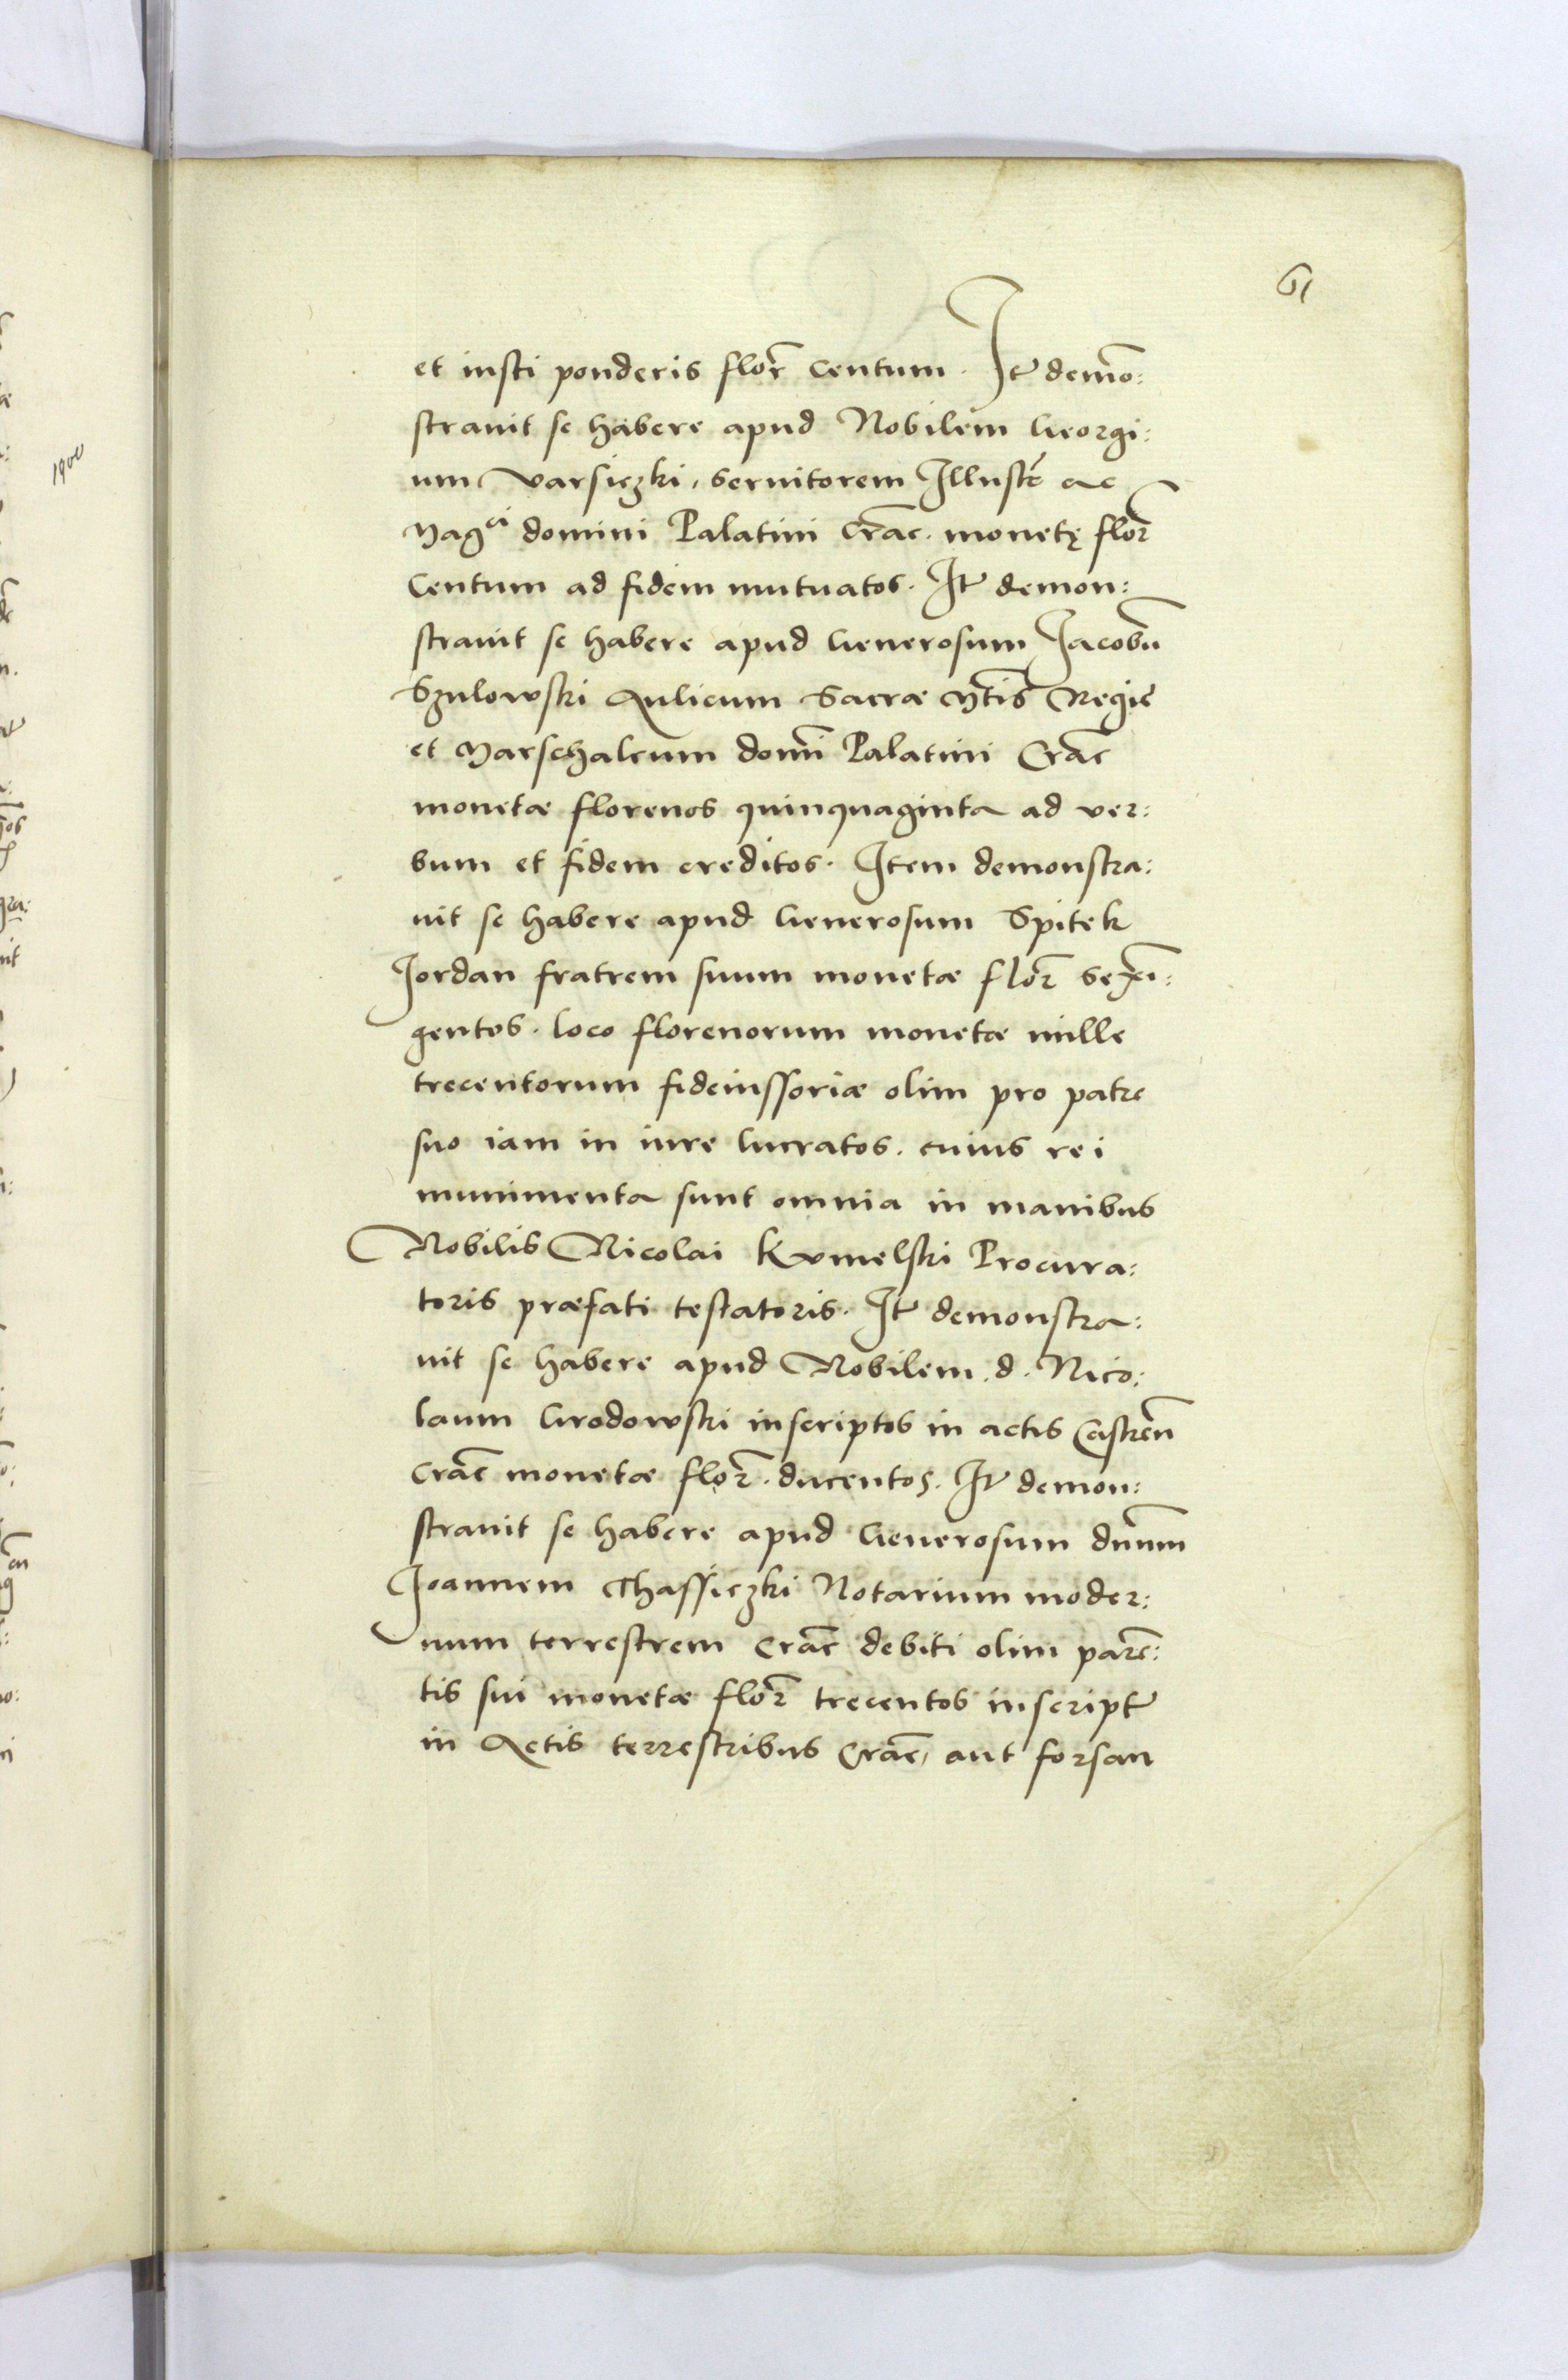 61
et iusti ponderis flor̃ centum. It̃ demõ:
strauit se habere apud Nobilem Georgi:
um Varsiczki, seruitorem Illustr̃ ac
Mag^ci domini Palatini Crac. monetę flor̃
centum ad fidem mutuatos. It̃ demon:
strauit se habere apud Generosum Jacobũ
Szulowski Aulicum Sacræ Mtĩs Regiẽ
et Marschalcum domĩ Palatini Crac̃
monetæ florenos quinquaginta ad ver:
bum et fidem creditos. Item demonstra:
uit se habere apud Generosum Spitek
Jordan fratrem suum monetæ flor̃ sexĩ:
gentos. loco florenorum monetæ mille
trecentorum fideiussoriæ olim pro patre
suo iam in iure lucratos. cuius rei
munimenta sunt omnia in manibus
Nobilis Nicolai Kxmelski Procura:
toris præfati testatoris. It̃ demonstra:
uit se habere apud Nobilem. d. Nico:
laum Grodowski inscriptos in actis Castreñ
Crac̃ monetæ flor̃. ducentos. It̃ demon:
strauit se habere apud Generosum dnũm
Joannem Chassiczki Notarium moder:
num terrestrem Crac̃ debiti olim parẽ:
tis sui monetæ flor̃ trecentos inscript̃
in Actis terrestribus Crac̃, aut forsan
1900